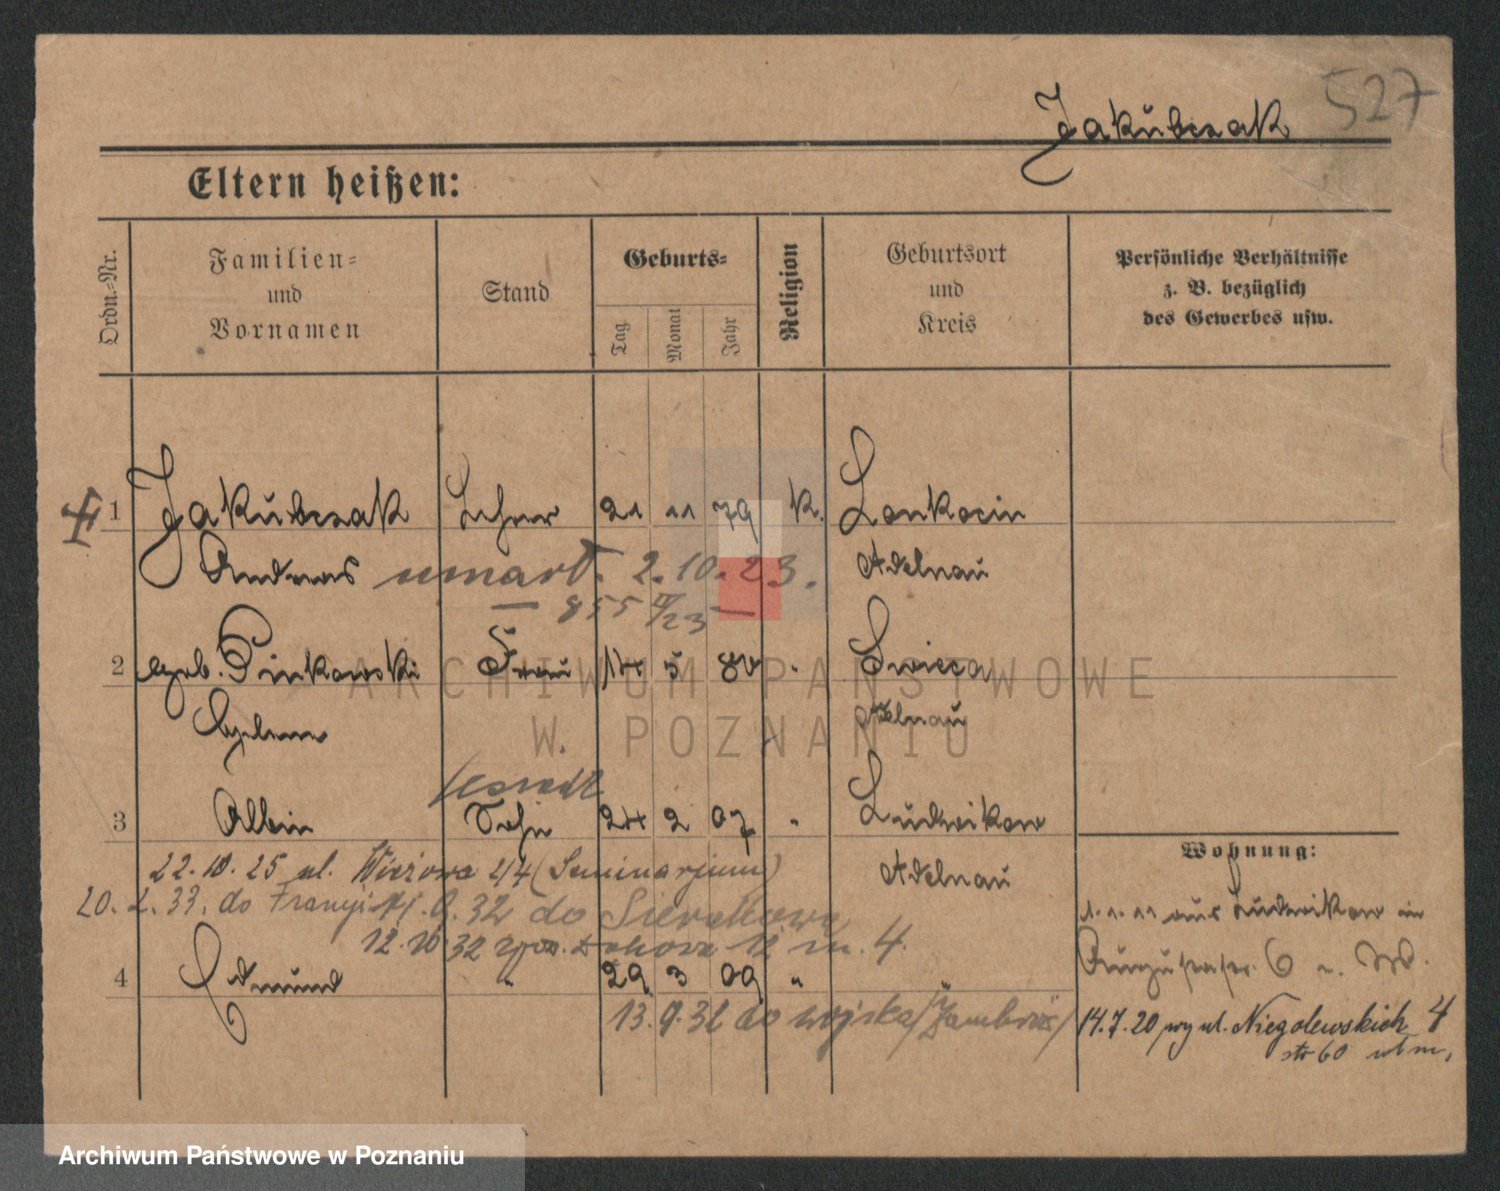 527
Jakubczak
Eltern heißen:
Ordn.-Nr.
Familien-
und
Vornamen
Stand
Geburts-
Tag
Monat
Jahr
Religion
Geburtsort
und
Kreis
Persönliche Verhältnisse
z. B. bezüglich
des Gewerbes usw.
1 Jakubczak Lehrer 21 11 79 k. Lonkocin
Andreas umarł. 2.10.23. Adelnau
— 855 II/23 —
2 geb. Pinkowski Frau 14 5 80 " Swieca
Helene Adelnau
3 Albin Sohn 24 2 07 " Ludwikow
22.10.25 ul. Wieżowa 44 (Seminarjum) Adelnau
20.2.33. do
.32 do Sierakowa
12.10 32 12 m. 4.
4 Edmund " 29 3 09 "
13.9.32 do wojska /Zambrów/
Wohnung:
1.1.11 aus Ludwikow in
6
14.7.20 wy ul. Niegolewskich 4
str 60
ARCHIWUM PAŃSTWOWE
W POZNANIU
Archiwum Państwowe w Poznaniu